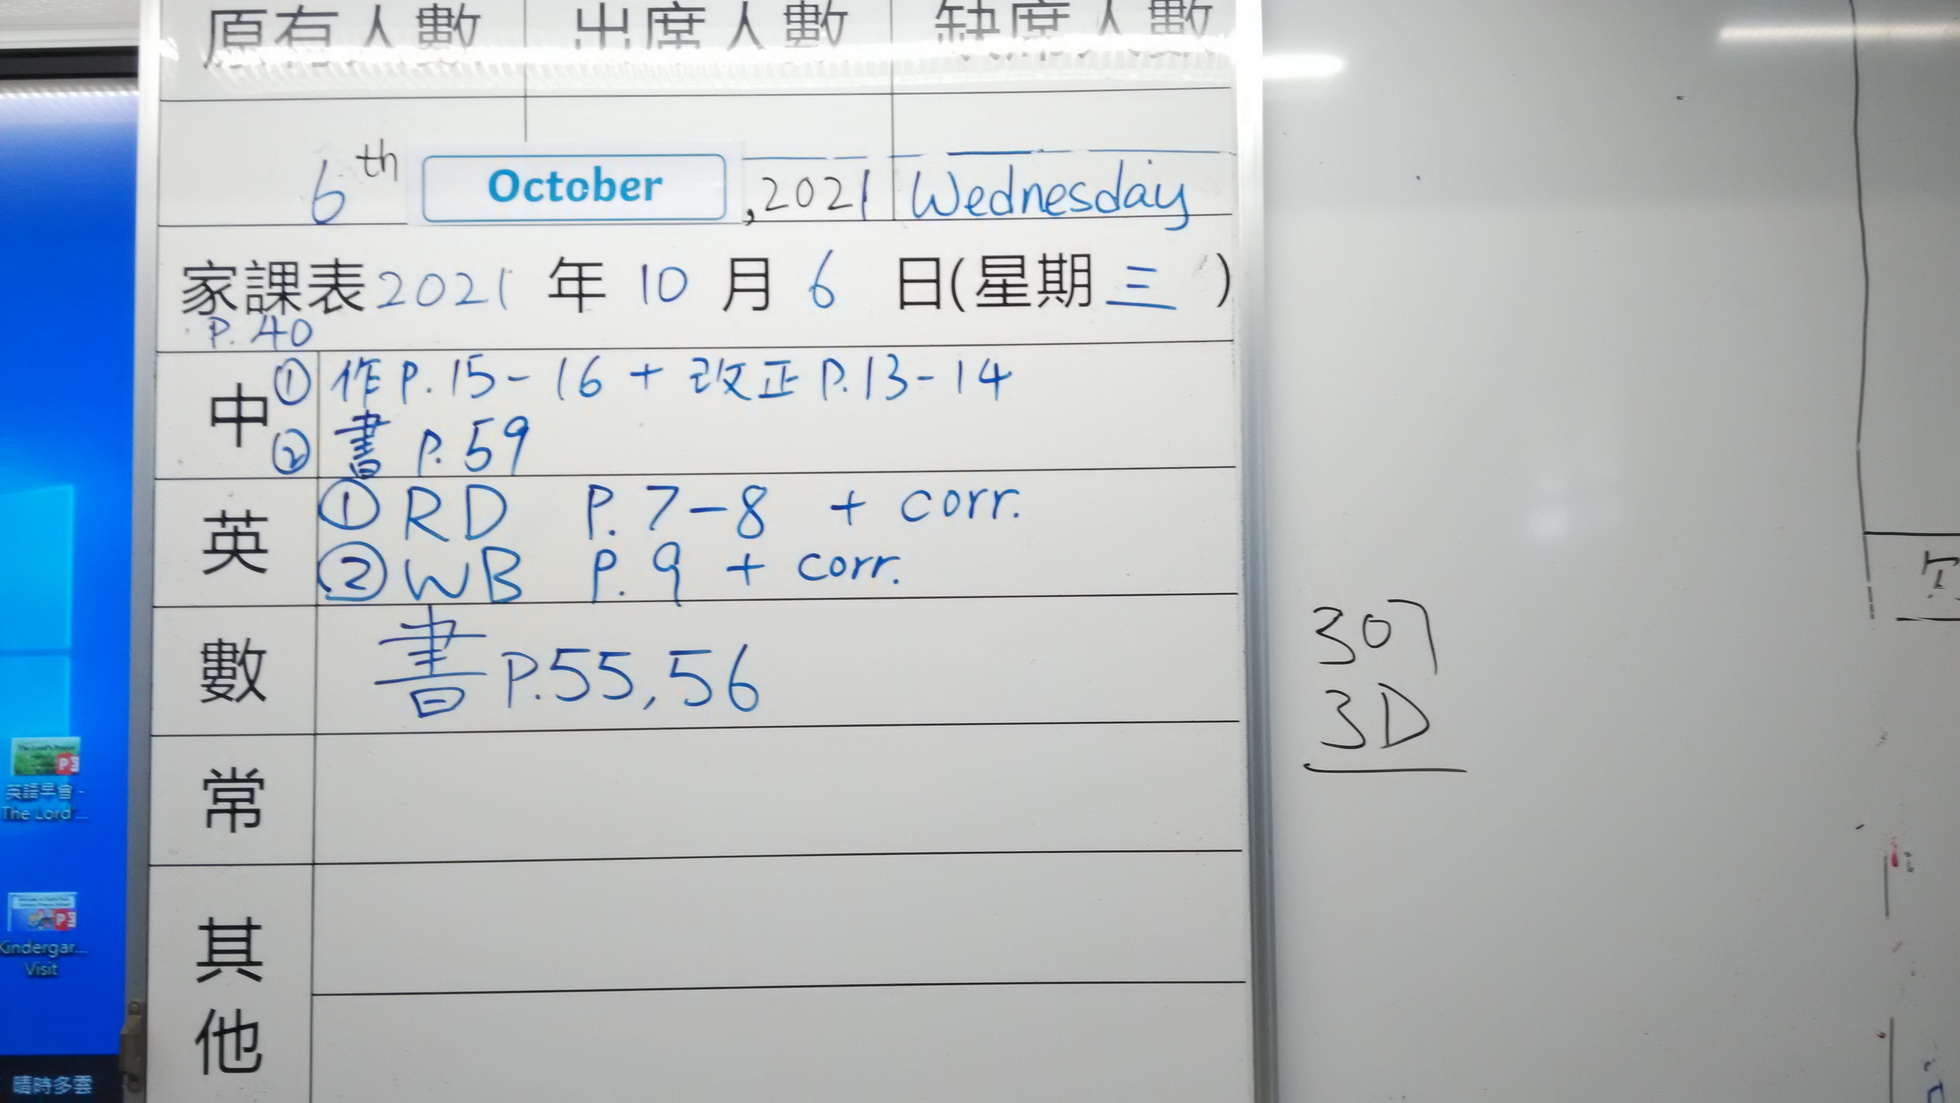 原有人數 出席人數 缺席人數
6th October, 2021 Wednesday
家課表2021年10月6日(星期三)
P.40
中 ① 作P.15-16 + 改正P.13-14
② 書 P.59
英 ① RD P.7-8 + corr.
② WB P.9 + corr.
數 書 P.55,56
常
其他
307
3D
英語早會 -
The Lord'...
Kindergar...
Visit
晴時多雲